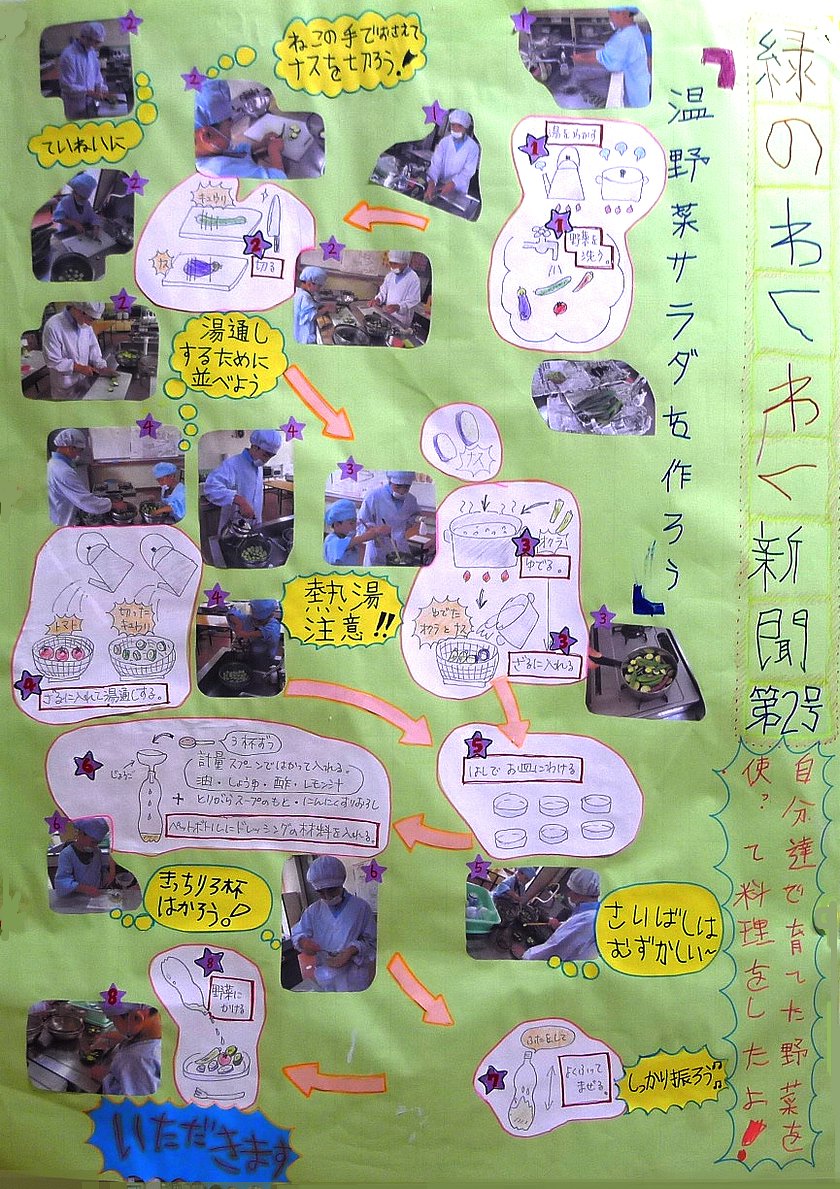 緑のわくわく新聞
第2号
自分達で育てた野菜を
使?て料理をしたよ!
「温野菜サラダを作ろう」
1
1
湯をわかす
1
野菜を
洗う。
1
ねこの手でおさえて
ナスを切ろう!
2
2
ていねいに
2
キュウリ
ナス
2
切る
2
2
湯通し
するために
並べよう
ナス
オクラ
3
ゆでる。
ゆでた
オクラとナス
3
ざるに入れる
3
3
熱湯
注意!!
4
4
4
トマト
切った
キュウリ
4
ざるに入れて湯通しする。
5
はしでお皿にわける
5
さいばしは
むずかしい~
6
じょうご
3杯ずつ
計量スプーンではかって入れる。
油・しょうゆ・酢・レモン汁
+とりがらスープのもと・にんにくすりおろし
ペットボトルにドレッシングの材料を入れる。
6
6
きっちり3杯
はかろう。
7
ふたをして
よくふって
まぜる。
しっかり振ろう♫
8
野菜に
かける
8
いただきます